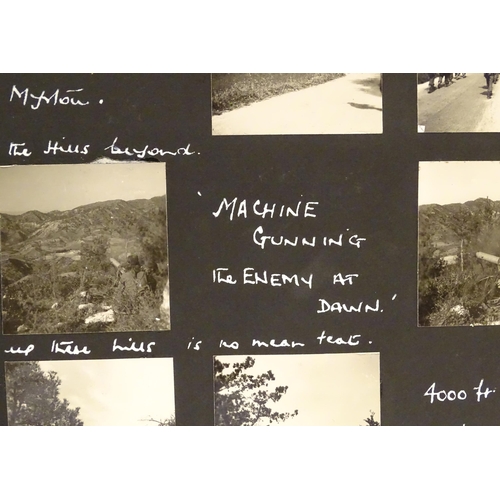 Myrtou.
the Hills beyond.
'MACHINE
GUNNING
the ENEMY AT
DAWN.'
up these hills is no mean feat.
4000 ft